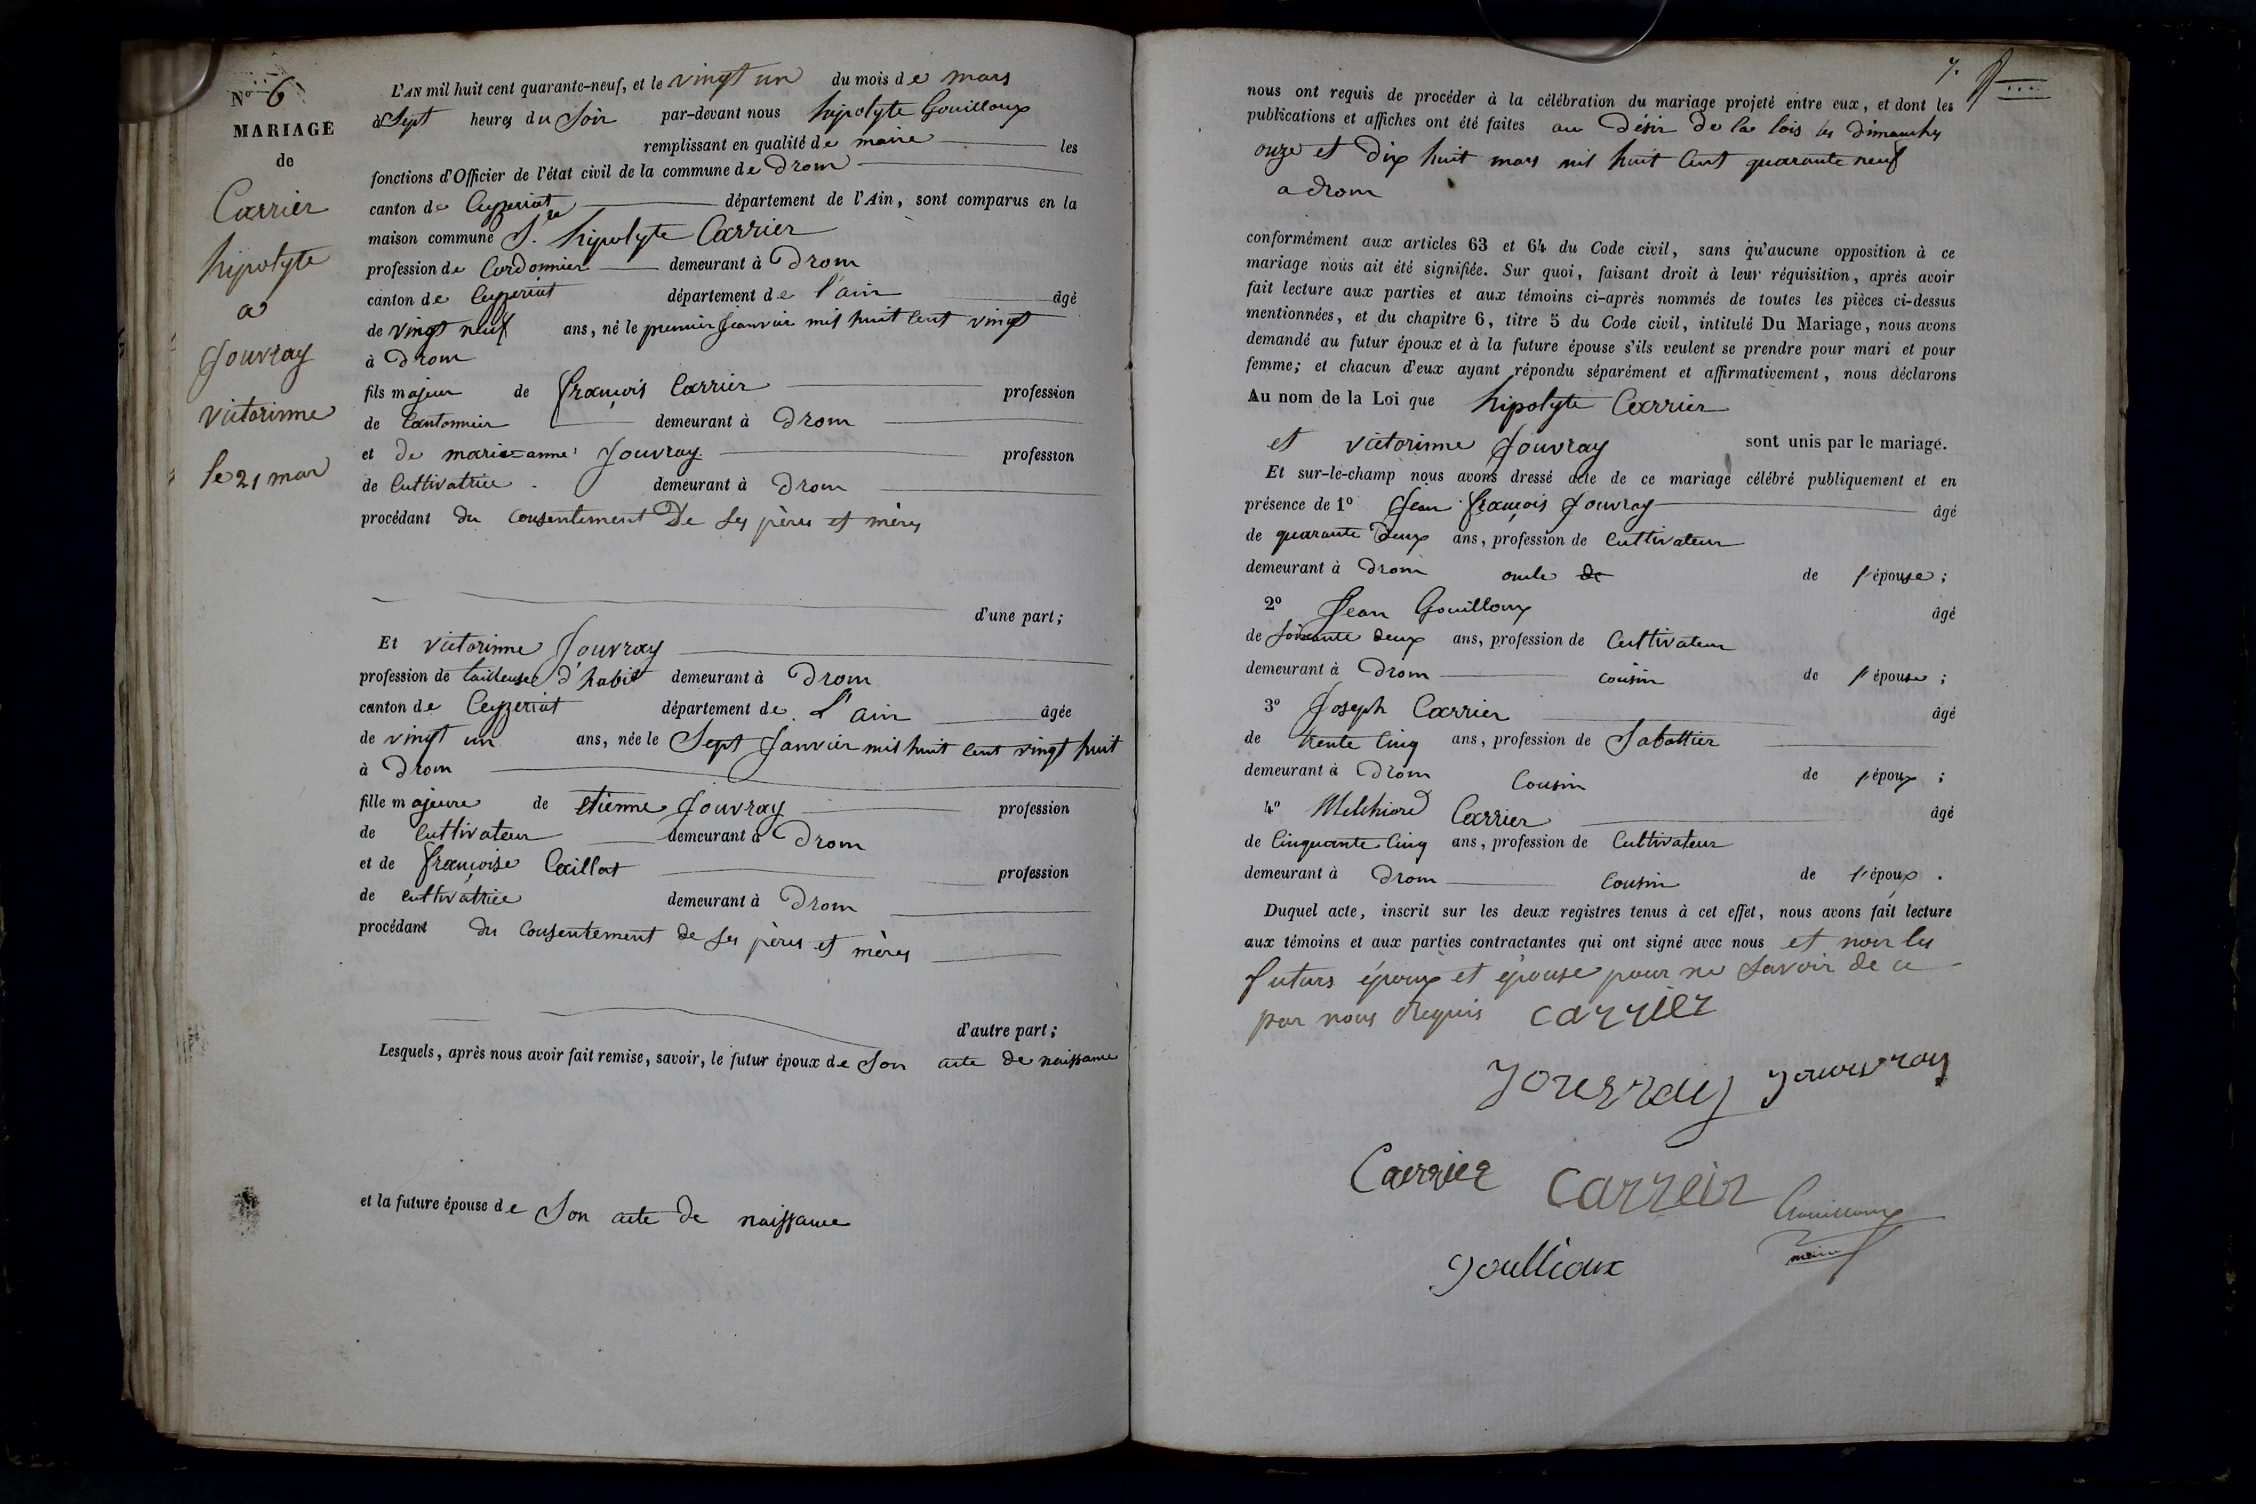 N° 6
MARIAGE
de
Carrier
hipolyte
a
Jouvray
victorinne
le 21 mar
L'AN mil huit cent quarante-neuf, et le vingt un du mois de mars
à Sept heures du Soir par-devant nous hipolyte Gouilloux
remplissant en qualité de maire les
fonctions d'Officier de l'état civil de la commune de Drom
canton de Ceyzeriat département de l'Ain, sont comparus en la
maison commune hipolyte Carrier
profession de Cordonnier demeurant à Drom
canton de Ceyzeriat département de l'ain âgé
de vingt neuf ans, né le premier Janvier mil huit Cent vingt
à Drom
fils majeur de françois Carrier profession
de Cantonnier demeurant à Drom
et de marie=anne Jouvray profession
de Cultivatrice demeurant à Drom
procédant du Consentement De Ses pères et mères
d'une part;
Et victorinne Jouvray
profession de tailleuse d'habit demeurant à Drom
canton de Ceyzeriat département de L'ain âgée
de vingt un ans, née le Sept Janvier mil huit Cent vingt huit
à Drom
fille majeure de etienne Jouvray profession
de Cultivateur demeurant à Drom
et de françoise Caillat profession
de Cultivatrice demeurant à Drom
procédant du Consentement de Ses pères et mères
d'autre part;
Lesquels, après nous avoir fait remise, savoir, le futur époux de Son acte de naissance
et la future épouse de Son acte de naissance
7.
nous ont requis de procéder à la célébration du mariage projeté entre eux, et dont les
publications et affiches ont été faites au Désir de la lois les dimanches
onze et Dix huit mars mil huit Cent quarante neuf
a drom
conformément aux articles 63 et 64 du Code civil, sans qu'aucune opposition à ce
mariage nous ait été signifiée. Sur quoi, faisant droit à leur réquisition, après avoir
fait lecture aux parties et aux témoins ci-après nommés de toutes les pièces ci-dessus
mentionnées, et du chapitre 6, titre 5 du Code civil, intitulé Du Mariage, nous avons
demandé au futur époux et à la future épouse s'ils veulent se prendre pour mari et pour
femme; et chacun d'eux ayant répondu séparément et affirmativement, nous déclarons
Au nom de la Loi que hipolyte Carrier
et victorinne Jouvray sont unis par le mariage.
Et sur-le-champ nous avons dressé acte de ce mariage célébré publiquement et en
présence de 1° Jean françois Jouvray âgé
de quarante Deux ans, profession de Cultivateur
demeurant à Drom oncle de de l'épouse;
2° Jean Gouilloux âgé
de Soixante deux ans, profession de Cultivateur
demeurant à Drom cousin de l'épouse;
3° Joseph Carrier âgé
de trente Cinq ans, profession de Sabottier
demeurant à Drom Cousin de l'époux;
4° Melchiord Carrier âgé
de Cinquante Cinq ans, profession de Cultivateur
demeurant à Drom Cousin de l'époux.
Duquel acte, inscrit sur les deux registres tenus à cet effet, nous avons fait lecture
aux témoins et aux parties contractantes qui ont signé avec nous et non les
futurs époux et épouse pour ne Savoir de ce
par nous Requis carrier
Jouvray jouvray
Carrier Carreir Gouilloux
maire
goullioux